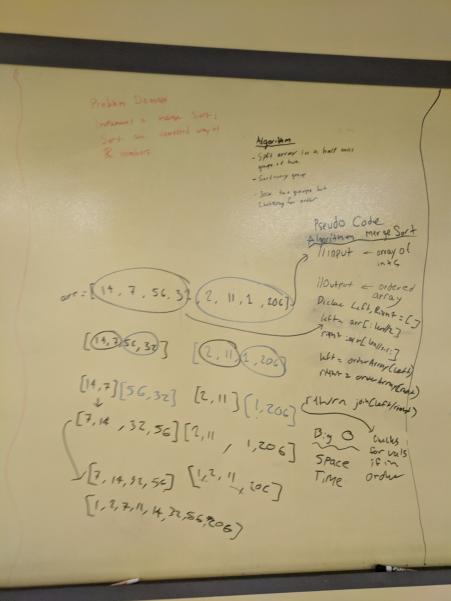 Problem Domain
Implement a merge Sort;
Sort an unordered array of
numbers
Algorithm
- Split array in a half until
groups of two
- Sort every group
- Join two groups but
checking for order
Pseudo Code
Algorithm Merge Sort
// Input ← array of
ints
// Output ← ordered
array
Declare Left, Right = []
left = arr[:half]
right = arr[half:]
left = orderArray(left)
right = orderArray(right)
return join(left/right)
checks
for vals
if in
order
Big O
Space
Time
arr = [14, 7, 56, 32, 2, 11, 1, 206]
[14, 7, 56, 32] [2, 11, 1, 206]
[14, 7] [56, 32] [2, 11] [1, 206]
[7, 14, 32, 56] [2, 11, 1, 206]
[7, 14, 32, 56] [1, 2, 11, 206]
[1, 2, 7, 11, 14, 32, 56, 206]